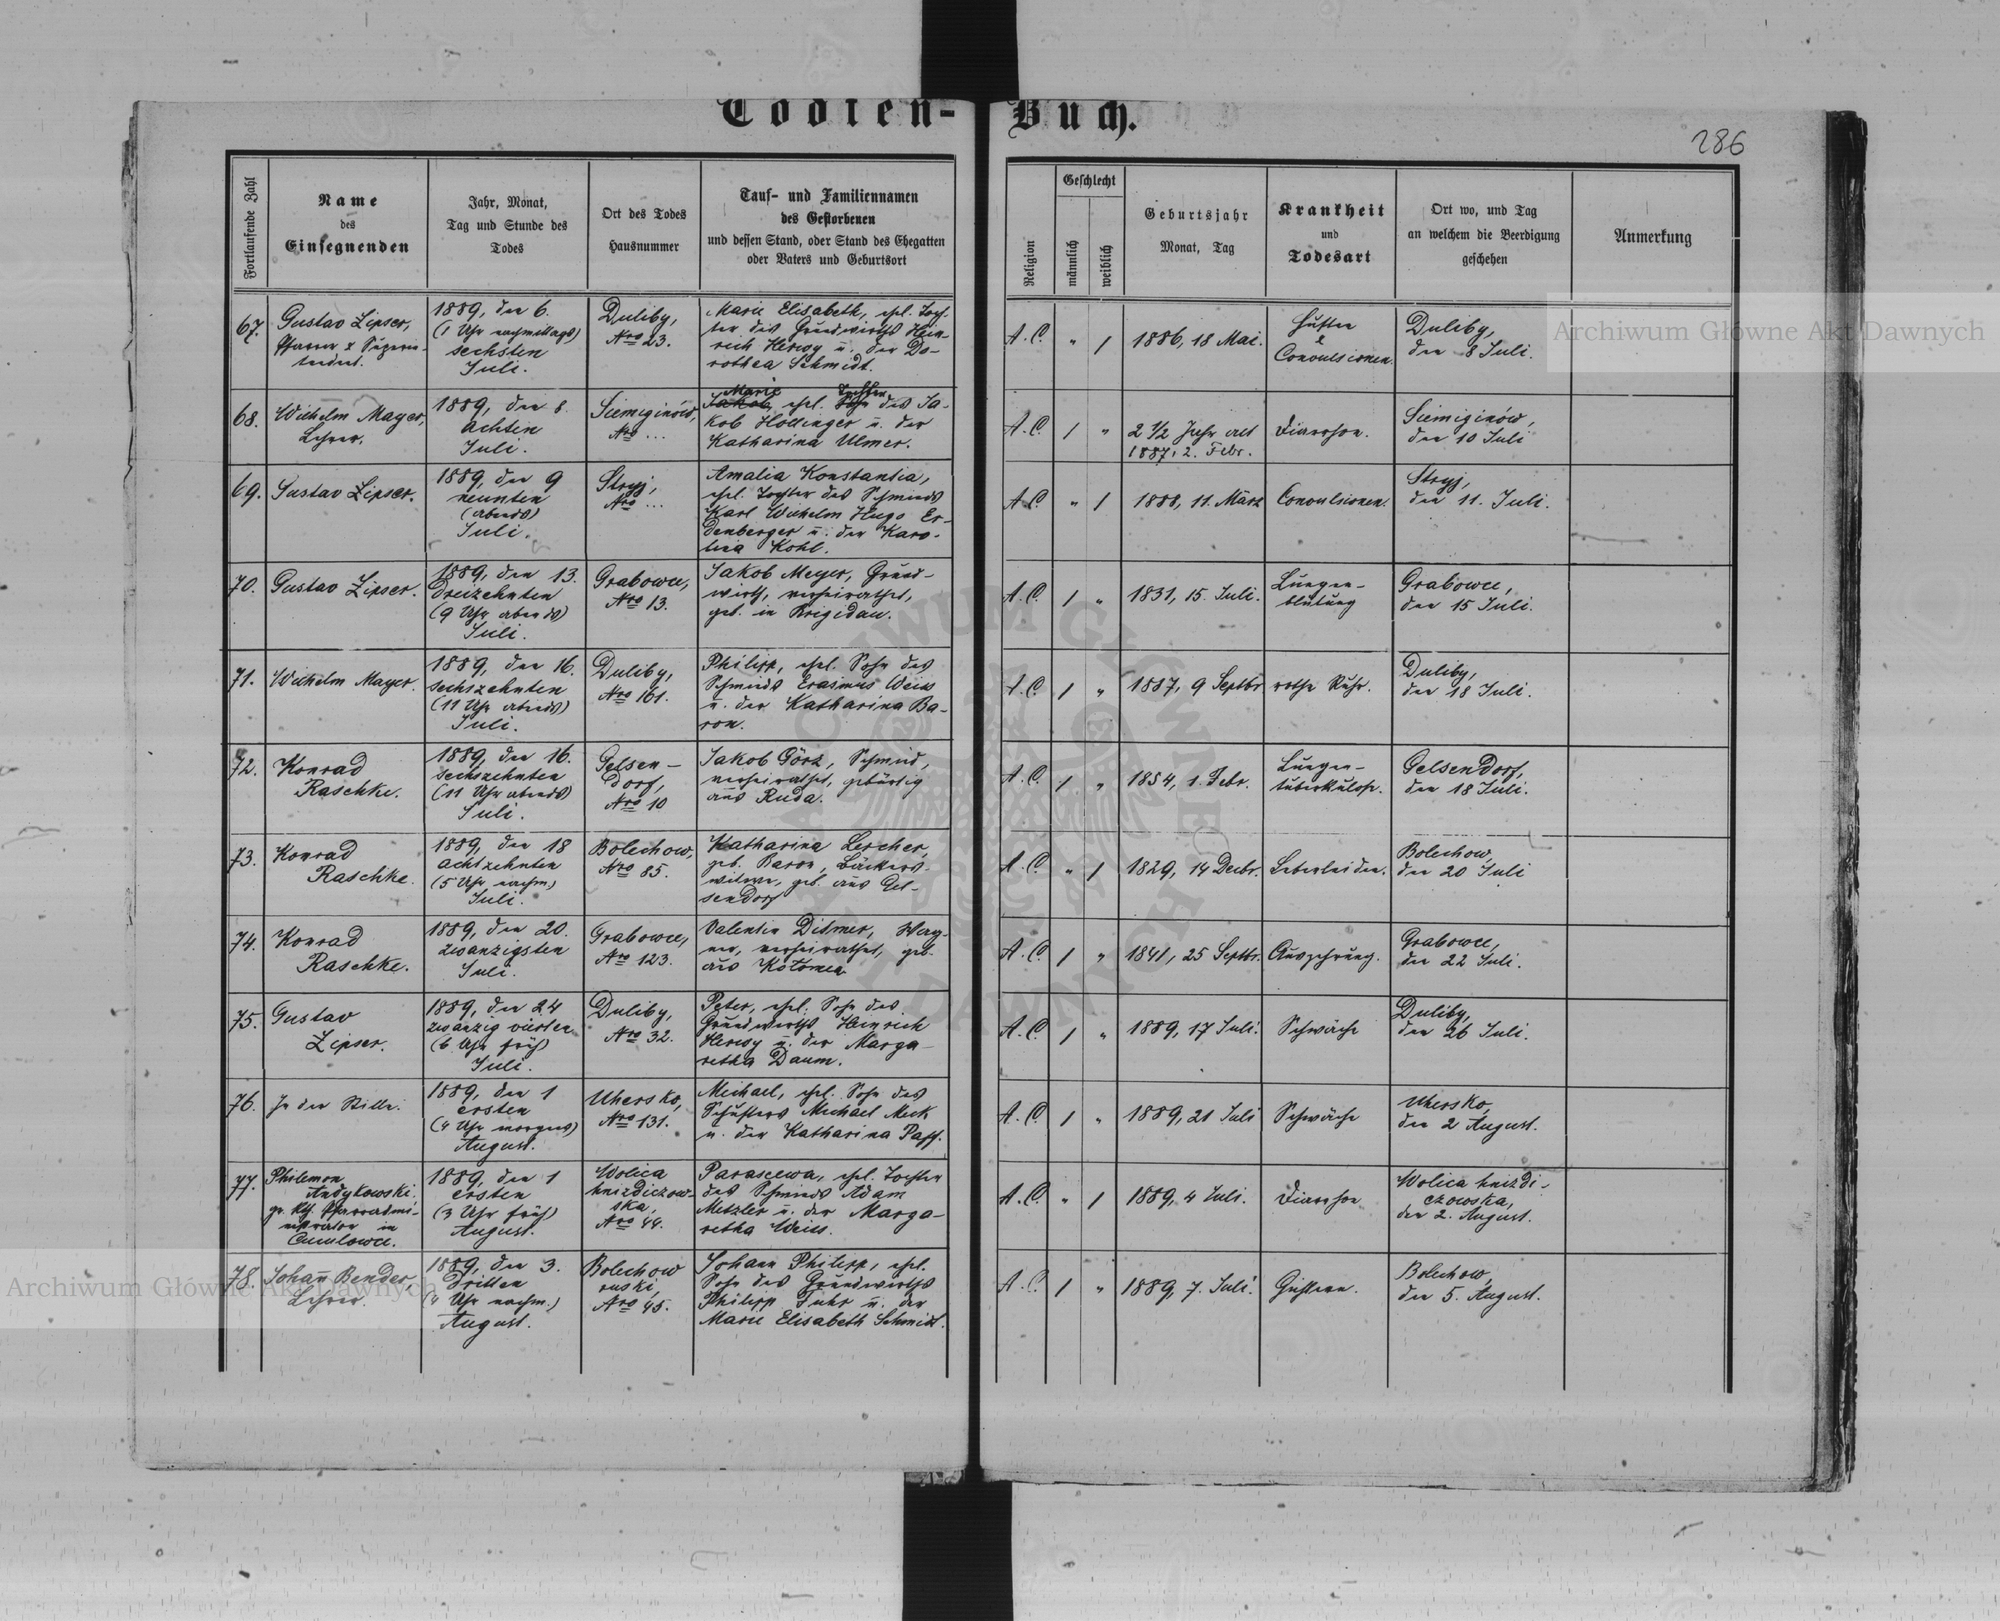 Todten-Buch.
286
Fortlaufende Zahl
Name
des
Einsegnenden
Jahr, Monat,
Tag und Stunde des
Todes
Ort des Todes
Hausnummer
Tauf- und Familiennamen
des Gestorbenen
und dessen Stand, oder Stand des Ehegatten
oder Vaters und Geburtsort
Religion
Geschlecht
männlich
weiblich
Geburtsjahr
Monat, Tag
Krankheit
und
Todesart
Ort wo, und Tag
an welchem die Beerdigung
geschehen
Anmerkung
67.
Gustav Zipser,
Pfarrer & Superin-
tendent.
1889, den 6.
(1 Uhr nachmittags)
sechsten
Juli.
Duliby,
Nro 23.
Marie Elisabeth, ehel. Toch-
ter des Grundwirths Hein-
rich Herwy u. der Do-
rothea Schmidt.
A.C.
"
1
1886, 18 Mai.
Husten
&
Convulsionen.
Duliby,
den 8 Juli.
68.
Wilhelm Mayer,
Lehrer.
1889, den 8.
achten
Juli.
Siemiginów,
Nro ...
Marie Tochter
Jakob, ehel. Sohn des Ja-
kob Hollinger u. der
Katharina Ulmer.
A.C.
1
"
2 1/2 Jahr alt
1887, 2. Febr.
Diarrhoe.
Siemiginów,
den 10 Juli
69.
Gustav Zipser.
1889, den 9
neunten
(abends)
Juli.
Stryj,
Nro ...
Amalia Konstantia,
ehel. Tochter des Schmieds
Karl Wilhelm Hugo Er-
denberger u. der Karo-
lina Kohl.
A.C.
"
1
1888, 11. März
Convulsionen.
Stryj,
den 11. Juli.
70.
Gustav Zipser.
1889, den 13.
dreizehnten
(9 Uhr abends)
Juli.
Grabowce,
Nro 13.
Jakob Meyer, Grund-
wirth, verheirathet,
geb. in Brigidau.
A.C.
1
"
1831, 15. Juli.
Lungen-
blutung
Grabowce,
den 15 Juli.
71.
Wilhelm Mayer.
1889, den 16.
sechszehnten
(11 Uhr abends)
Juli.
Duliby,
Nro 161.
Philipp, ehel. Sohn des
Schmieds Erasimus Weiss
u. der Katharina Ba-
ron.
A.C.
1
"
1887, 9 Septbr.
rothe Ruhr.
Duliby,
den 18 Juli.
72.
Konrad
Raschke.
1889, den 16.
sechszehnten
(11 Uhr abends)
Juli.
Gelsen-
dorf,
Nro 10
Jakob Görz, Schmied,
verheirathet, gebürtig
aus Ruda.
A.C.
1
"
1854, 1. Febr.
Lungen-
tuberkulose.
Gelsendorf,
den 18 Juli.
73.
Konrad
Raschke.
1889, den 18
achtzehnten
(5 Uhr nachm.)
Juli.
Bolechow,
Nro 85.
Katharina Lercher,
geb. Baron, Bäckers-
witwe, geb. aus Gel-
sendorf
A.C.
"
1
1829, 14 Decbr.
Leberleiden.
Bolechow,
den 20 Juli
74.
Konrad
Raschke.
1889, den 20.
zwanzigsten
Juli.
Grabowce,
Nro 123.
Valentin Ditmer, Wag-
ner, verheirathet, geb.
aus Kołomea
A.C.
1
"
1841, 25 Septbr.
Auszehrung.
Grabowce,
den 22 Juli.
75.
Gustav
Zipser.
1889, den 24
zwanzig vierten
(6 Uhr früh)
Juli.
Duliby,
Nro 32.
Peter, ehel. Sohn des
Grundwirths Heinrich
Herwy u. der Marga-
retha Daum.
A.C.
1
"
1889, 17 Juli.
Schwäche
Duliby,
den 26 Juli.
76.
In der Stille.
1889, den 1
ersten
(4 Uhr morgens)
August.
Uhersko,
Nro 131.
Michael, ehel. Sohn des
Schusters Michael Meck
u. der Katharina Paff.
A.C.
1
"
1889, 21 Juli
Schwäche
Uhersko,
den 2 August.
77.
Philemon
Andykowski,
gr. kth. Pfarradmi-
nistrator in
Cucułowce.
1889, den 1
ersten
(3 Uhr früh)
August.
Wolica
hnizdiczow-
ska,
Nro 44.
Parascewa, ehel. Tochter
des Schmieds Adam
Metzler u. der Marga-
retha Weiss.
A.C.
"
1
1889, 4 Juli.
Diarrhoe
Wolica hnizdi-
czowska,
den 2. August.
78.
Johañ Bender,
Lehrer.
1889, den 3.
dritten
(4 Uhr nachm.)
August.
Bolechow
ruski,
Nro 45.
Johann Philipp, ehel.
Sohn des Grundwirths
Philipp Fuhr u. der
Marie Elisabeth Schmidt.
A.C.
1
"
1889, 7. Juli.
Husten.
Bolechow,
den 5. August.
Archiwum Główne Akt Dawnych
Archiwum Główne Akt Dawnych
ARCHIWUM GŁÓWNE AKT DAWNYCH